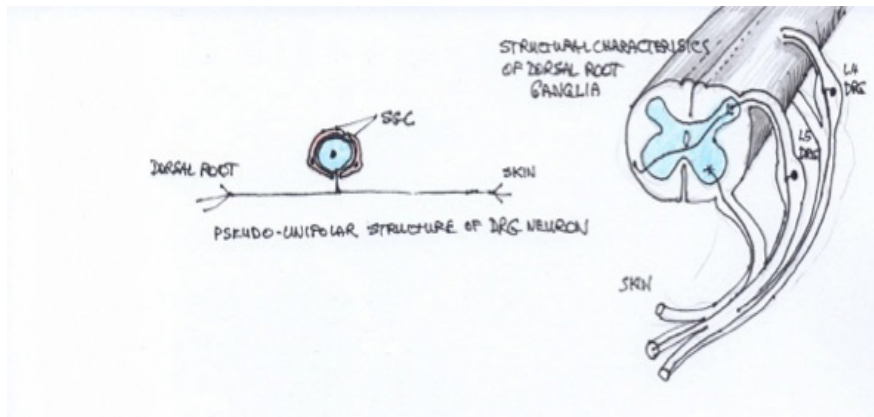 STRUCTURAL CHARACTERISICS
OF DORSAL ROOT
GANGLIA
L4
DRG
SGC
L5
DRG
DORSAL ROOT
SKIN
PSEUDO-UNIPOLAR STRUCTURE OF DRG NEURON
SKIN